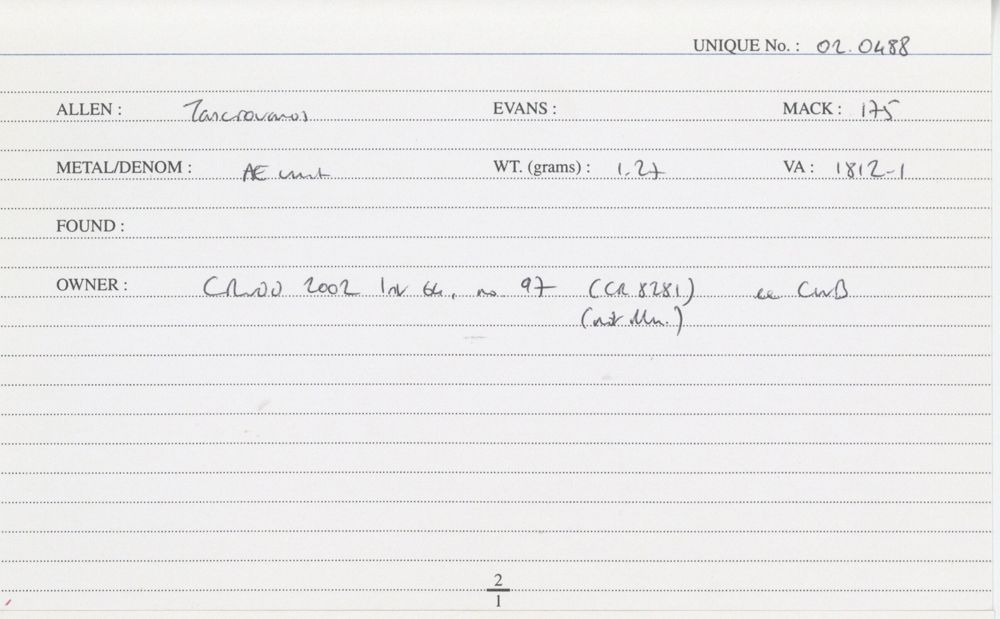 UNIQUE No. : 02.0488
ALLEN : Tasciovanos EVANS : MACK : 175
METAL/DENOM : AE unit WT. (grams) : 1.27 VA : 1812-1
FOUND :
OWNER : 2002 64, no 97 (CR 8281) ex
(not)
2
1